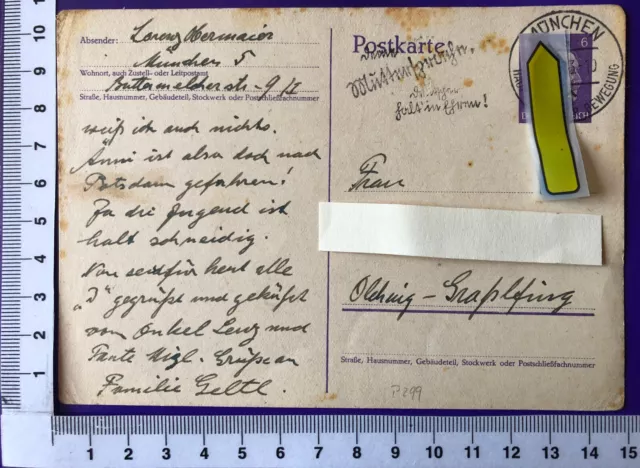 Absender: Lorenz Obermaier
München 5
Wohnort, auch Zustell- oder Leitpostamt
Buttermelcherstr. 9/I
Straße, Hausnummer, Gebäudeteil, Stockwerk oder Postschließfachnummer
weiß ich auch nichts.
Anni ist also doch nach
Potsdam gefahren!
Ja die Jugend ist
halt schneidig.
Nun seid für heut alle
"3" gegrüßt und geküßt
vom Onkel Lenz und
Tante Migl. Grüße an
Familie Geltl.
Postkarte
deine
Muttersprache,
halt in Ehren!
MÜNCHEN
BEWEGUNG
6
Frau
Olching-Graßlfing
Straße, Hausnummer, Gebäudeteil, Stockwerk oder Postschließfachnummer
P299
10
9
8
7
6
5
4
3
2
1
1 2 3 4 5 6 7 8 9 10 11 12 13 14 15